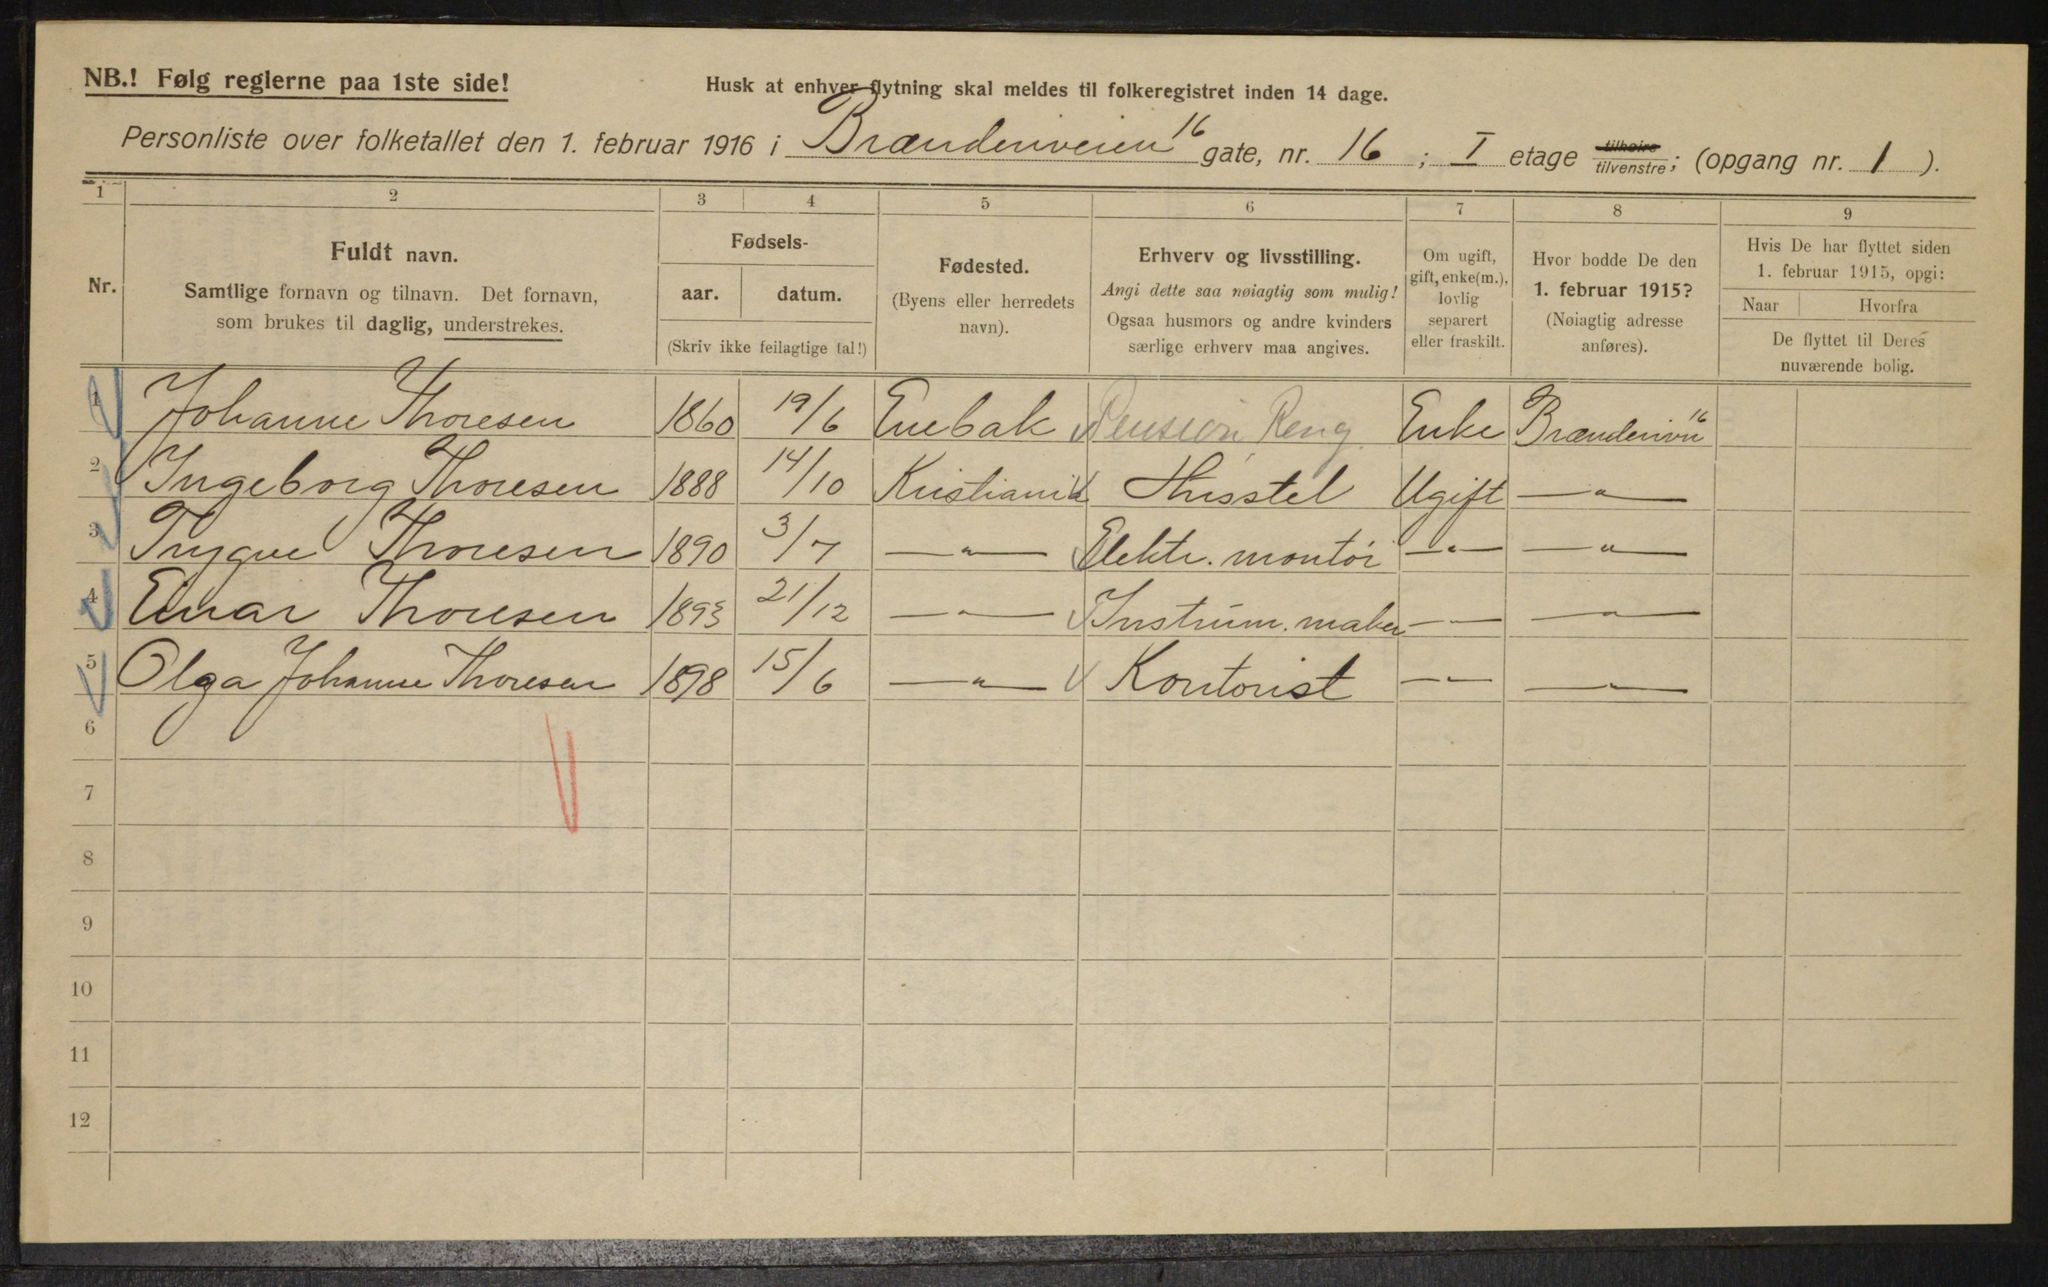 NB.! Følg reglerne paa 1ste side!
Husk at enhver flytning skal meldes til folkeregistret inden 14 dage.
Personliste over folketallet den 1. februar 1916 i Brændenveien 16 gate, nr. 16 ; I etage tilhøire tilvenstre; (opgang nr. 1 ).
1 2 3 4 5 6 7 8 9
Nr.
Fuldt navn.
Samtlige fornavn og tilnavn. Det fornavn,
som brukes til daglig, understrekes.
Fødsels-
aar. datum.
(Skriv ikke feilagtige tal!)
Fødested.
(Byens eller herredets
navn).
Erhverv og livsstilling.
Angi dette saa nøiagtig som mulig!
Ogsaa husmors og andre kvinders
særlige erhverv maa angives.
Om ugift,
gift, enke(m.),
lovlig
separert
eller fraskilt.
Hvor bodde De den
1. februar 1915?
(Nøiagtig adresse
anføres).
Hvis De har flyttet siden
1. februar 1915, opgi:
Naar Hvorfra
De flyttet til Deres
nuværende bolig.
1 Johanne Thoresen 1860 19/6 Enebak Pension Reng. Enke Brændenvn 16
2 Ingeborg Thoresen 1888 14/10 Kristiania Husstel Ugift —"—
3 Trygve Thoresen 1890 3/7 —"— Elektr. montør —"— —"—
4 Einar Thoresen 1893 21/12 —"— Instrum. maker —"— —"—
5 Olga Johanne Thoresen 1898 15/6 —"— Kontorist —"— —"—
6
7
8
9
10
11
12